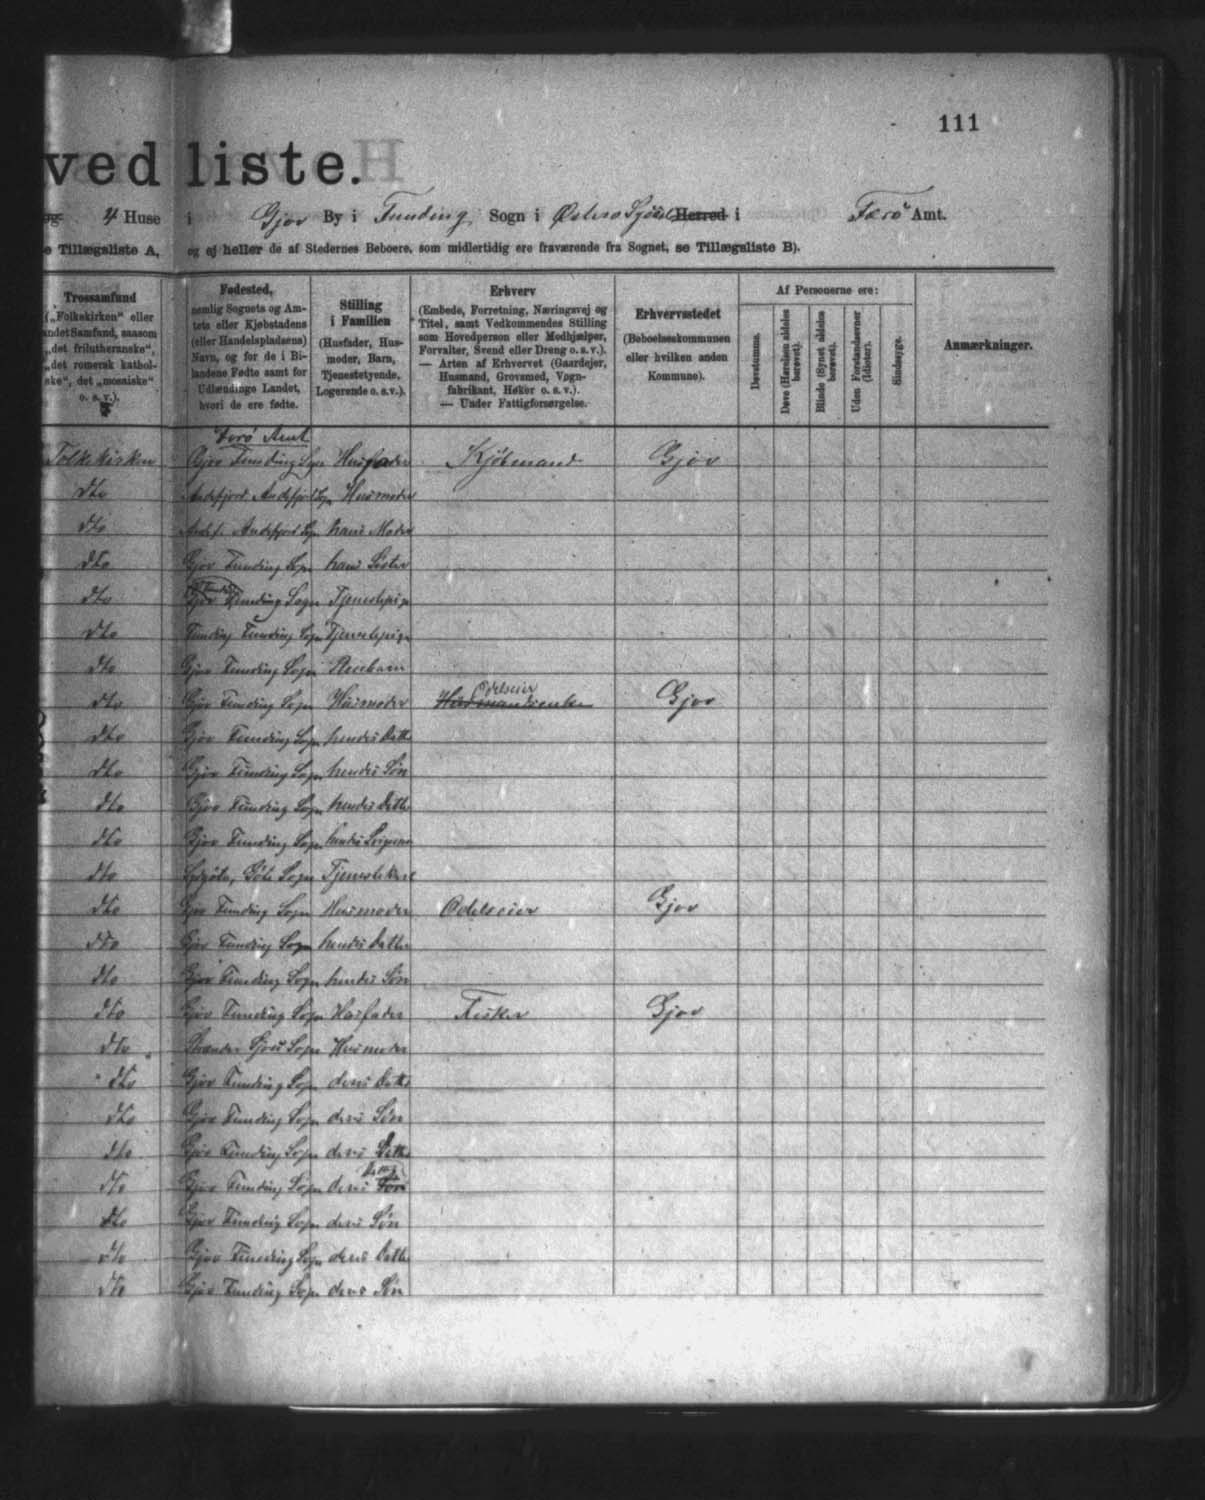 111
ved liste.
og 4 Huse i Gjov By i Funding Sogn i Østerø Syssel Herred i Færø Amt.
e Tillægsliste A, og ej heller de af Stedernes Beboere, som midlertidig ere fraværende fra Sognet, se Tillægsliste B).
Trossamfund
(„Folkekirken“ eller
andet Samfund, saasom
„det frilutheranske“,
„det romersk kathol-
ske“, det „mosaiske“
o. s. v.).
Fødested,
nemlig Sognets og Am-
tets eller Kjøbstadens
(eller Handelspladsens)
Navn, og for de i Bi-
landene Fødte samt for
Udlændinge Landet,
hvori de ere fødte.
Stilling
i Familien
(Husfader, Hus-
moder, Barn,
Tjenestetyende,
Logerende o. s. v.).
Erhverv
(Embede, Forretning, Næringsvej og
Titel, samt Vedkommendes Stilling
som Hovedperson eller Medhjælper,
Forvalter, Svend eller Dreng o. s. v.).
— Arten af Erhvervet (Gaardejer,
Husmand, Grovsmed, Vogn-
fabrikant, Høker o. s. v.).
— Under Fattigforsørgelse.
Erhvervsstedet
(Beboelseskommunen
eller hvilken anden
Kommune).
Af Personerne ere:
Døvstumme.
Døve (Hørelsen aldeles berøvet).
Blinde (Synet aldeles berøvet).
Uden Forstandsevner (Idioter).
Sindssyge.
Anmærkninger.
Færø Amt
Folkekirken Gjov Funding Sogn Husfader Kjøbmand Gjov
dto Andefjord Andefjord Sogn Husmoder
dto Andef. Andefjord Sogn hans Moder
dto Gjov Funding Sogn hans Søster
dto Funding Sogn Tjenestepige
dto Funding Funding Sogn Tjenestepige
dto Gjov Funding Sogn
dto Gjov Funding Sogn Husmoder Odelseier Gjov
dto Gjov Funding Sogn hendes Datter
dto Gjov Funding Sogn hendes Søn
dto Gjov Funding Sogn hendes Datter
dto Gjov Funding Sogn hendes
dto Gøte Sogn Tjenestekarl
dto Gjov Funding Sogn Husmoder Odelseier Gjov
dto Gjov Funding Sogn hendes Datter
dto Gjov Funding Sogn hendes Søn
dto Gjov Funding Sogn Husfader Fisker Gjov
dto Sogn Husmoder
dto Gjov Funding Sogn deres Datter
dto Gjov Funding Sogn deres Søn
dto Gjov Funding Sogn deres Datter
dto Gjov Funding Sogn deres Datter
dto Gjov Funding Sogn deres Søn
dto Gjov Funding Sogn deres Datter
dto Gjov Funding Sogn deres Søn